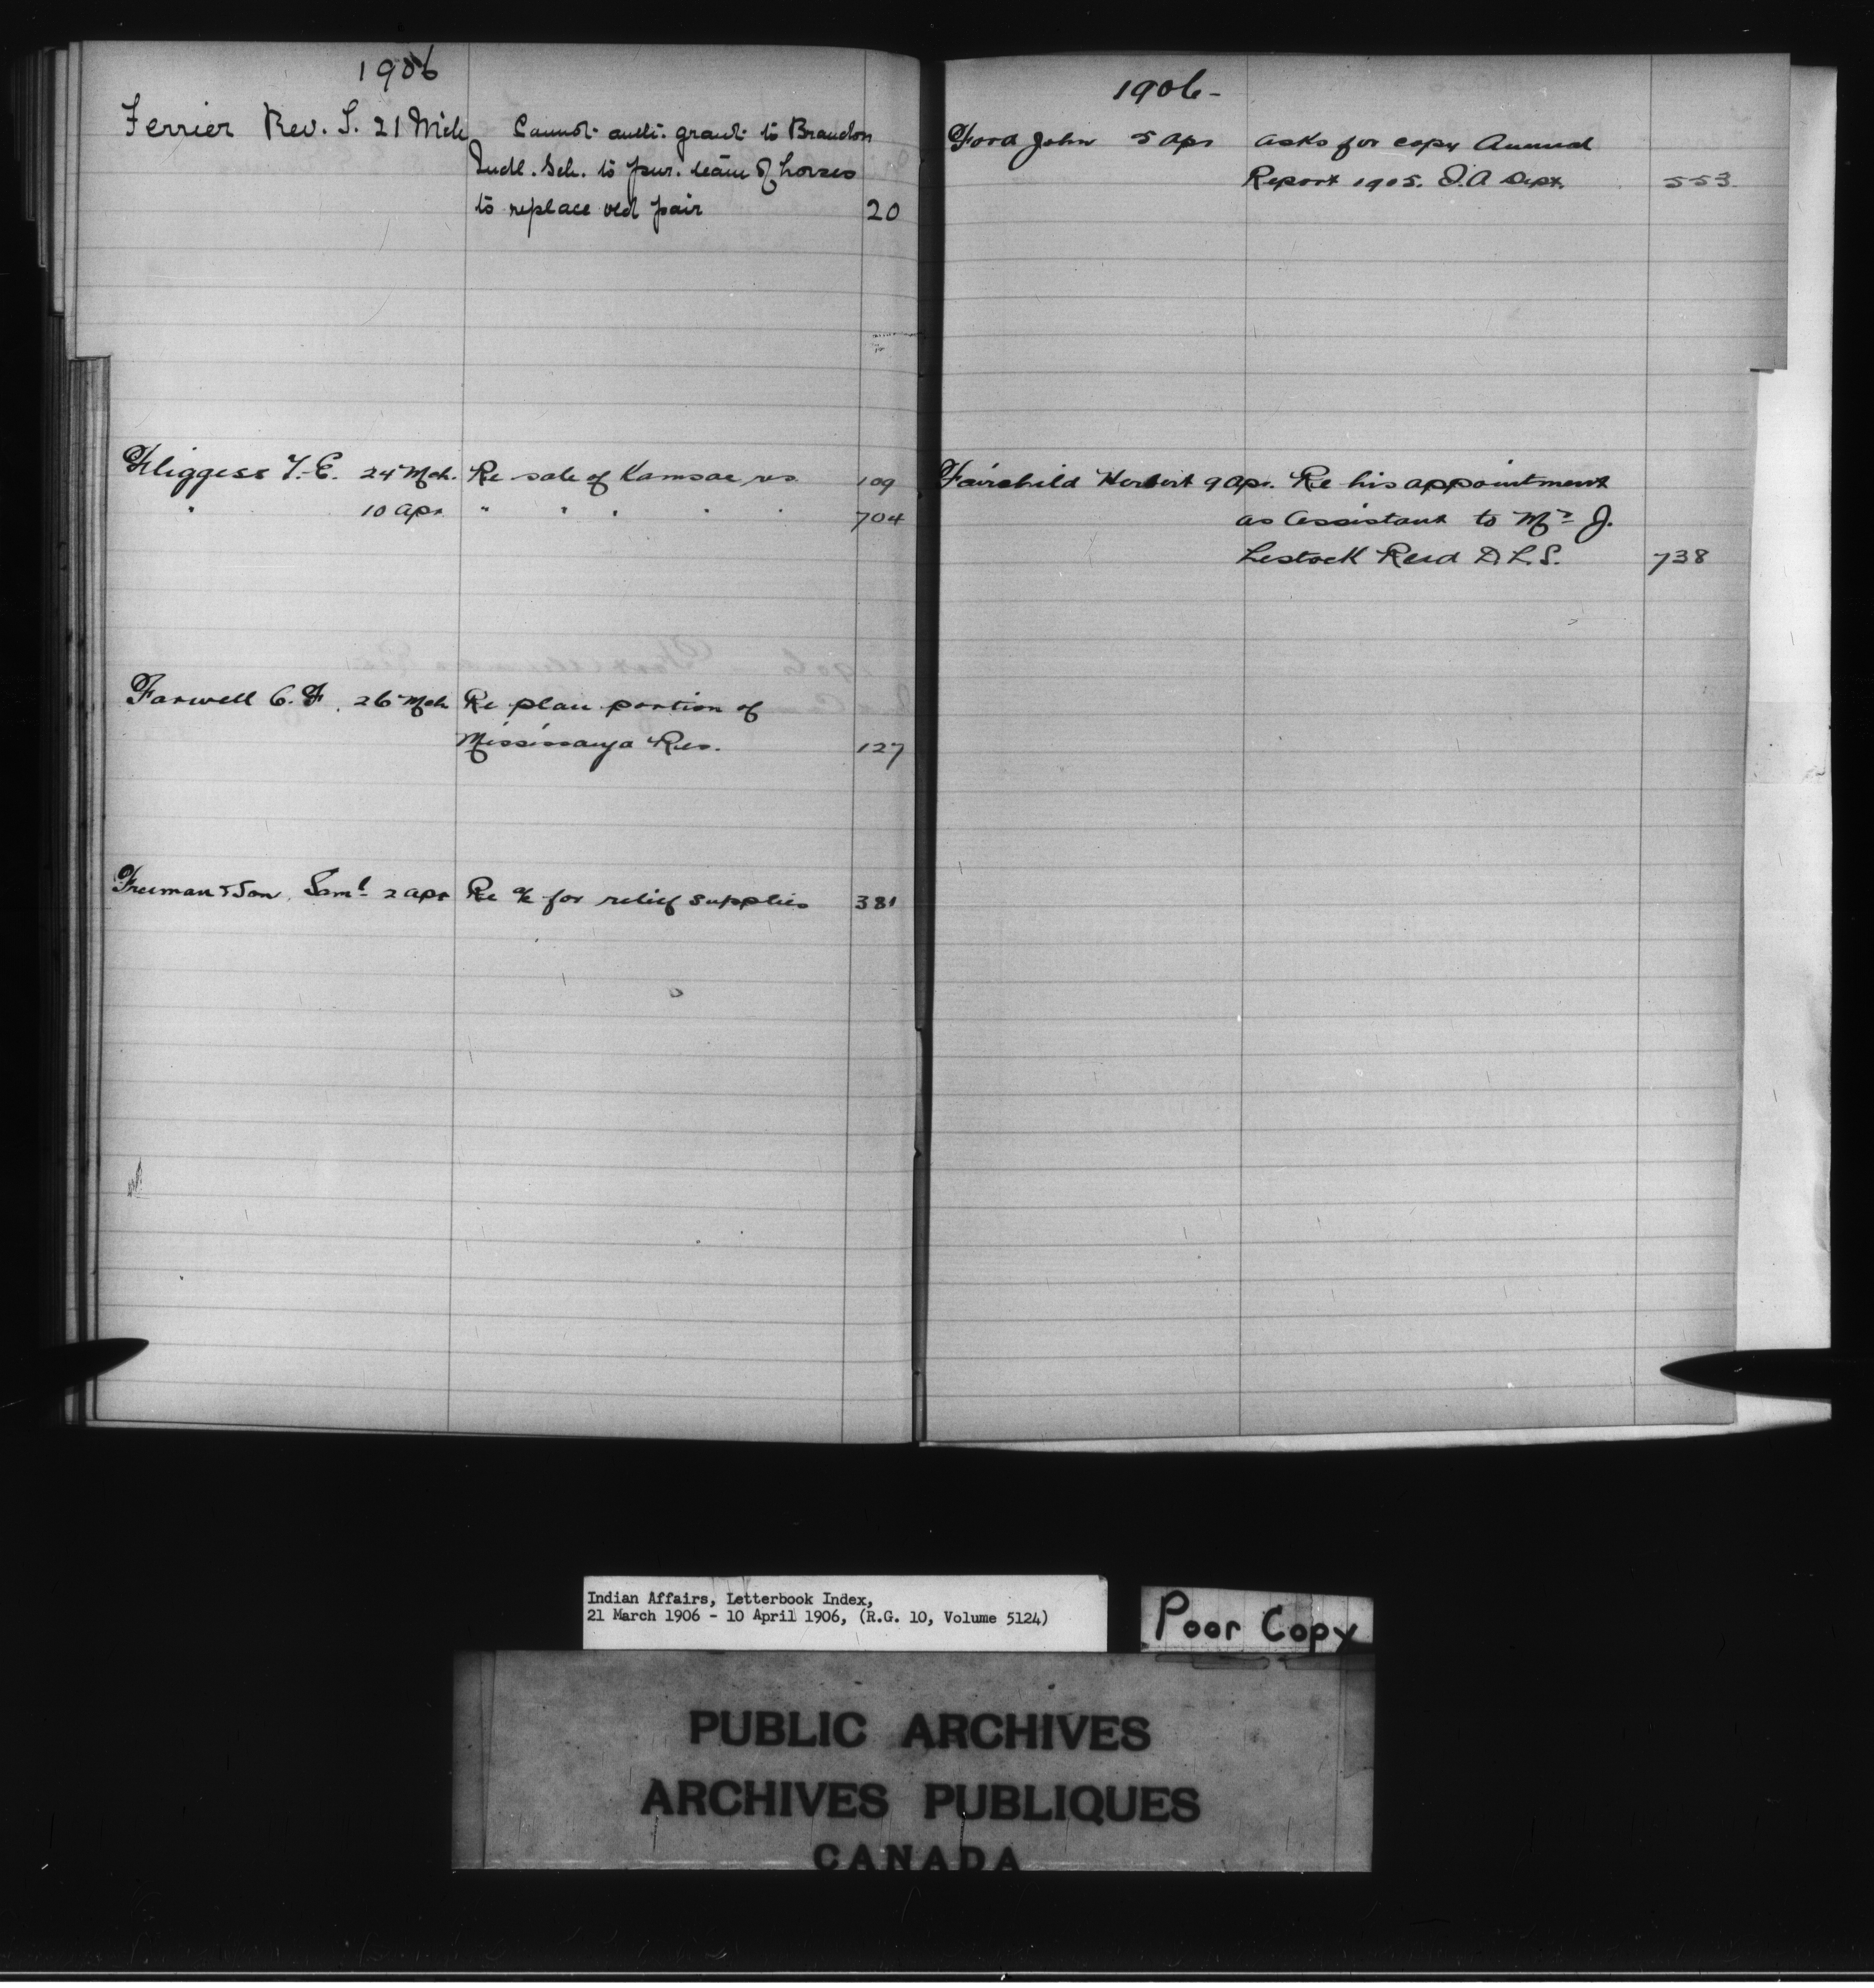 1906
Ferrier Rev. T. 21 Mch Cannot auth. grant to Brandon
Indl. Sch. to pur. team of horses
to replace old pair 20
Fliggess T. E. 24 Mch. Re sale of Kamsac res. 109
" 10 Apr " " " " " 704
Farwell C. F. 26 Mch Re plan portion of
Mississauga Res. 127
Freeman & Son, Saml 2 Apr Re a/c for relief supplies 381
1906-
Ford John 5 Apr asks for copy Annual
Report 1905. I.A Dept. 553
Fairchild Herbert 9 Apr. Re his appointment
as Assistant to Mr J.
Lestock Reid D.L.S. 738
Indian Affairs, Letterbook Index,
21 March 1906 - 10 April 1906, (R.G. 10, Volume 5124)
Poor Copy
PUBLIC ARCHIVES
ARCHIVES PUBLIQUES
CANADA